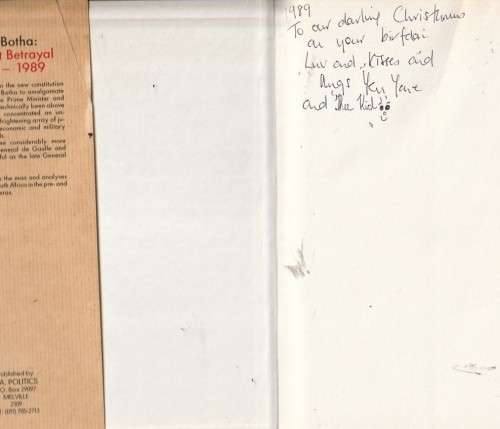 Botha:
t Betrayal
– 1989
n the new constitution
Botha to amalgamate
e Prime Minister and
technically been above
concentrated on un-
frightening array of ju-
economic and military
se considerably more
eneral de Gaulle and
ful as the late General
s the man and analyses
outh Africa in the pre- and
eras.
ublished by
A. POLITICS
O. Box 29097
MELVILLE
2109
1989
To our darling
on your birfdai
Luv and Kisses and
Hugs
and The Kidz